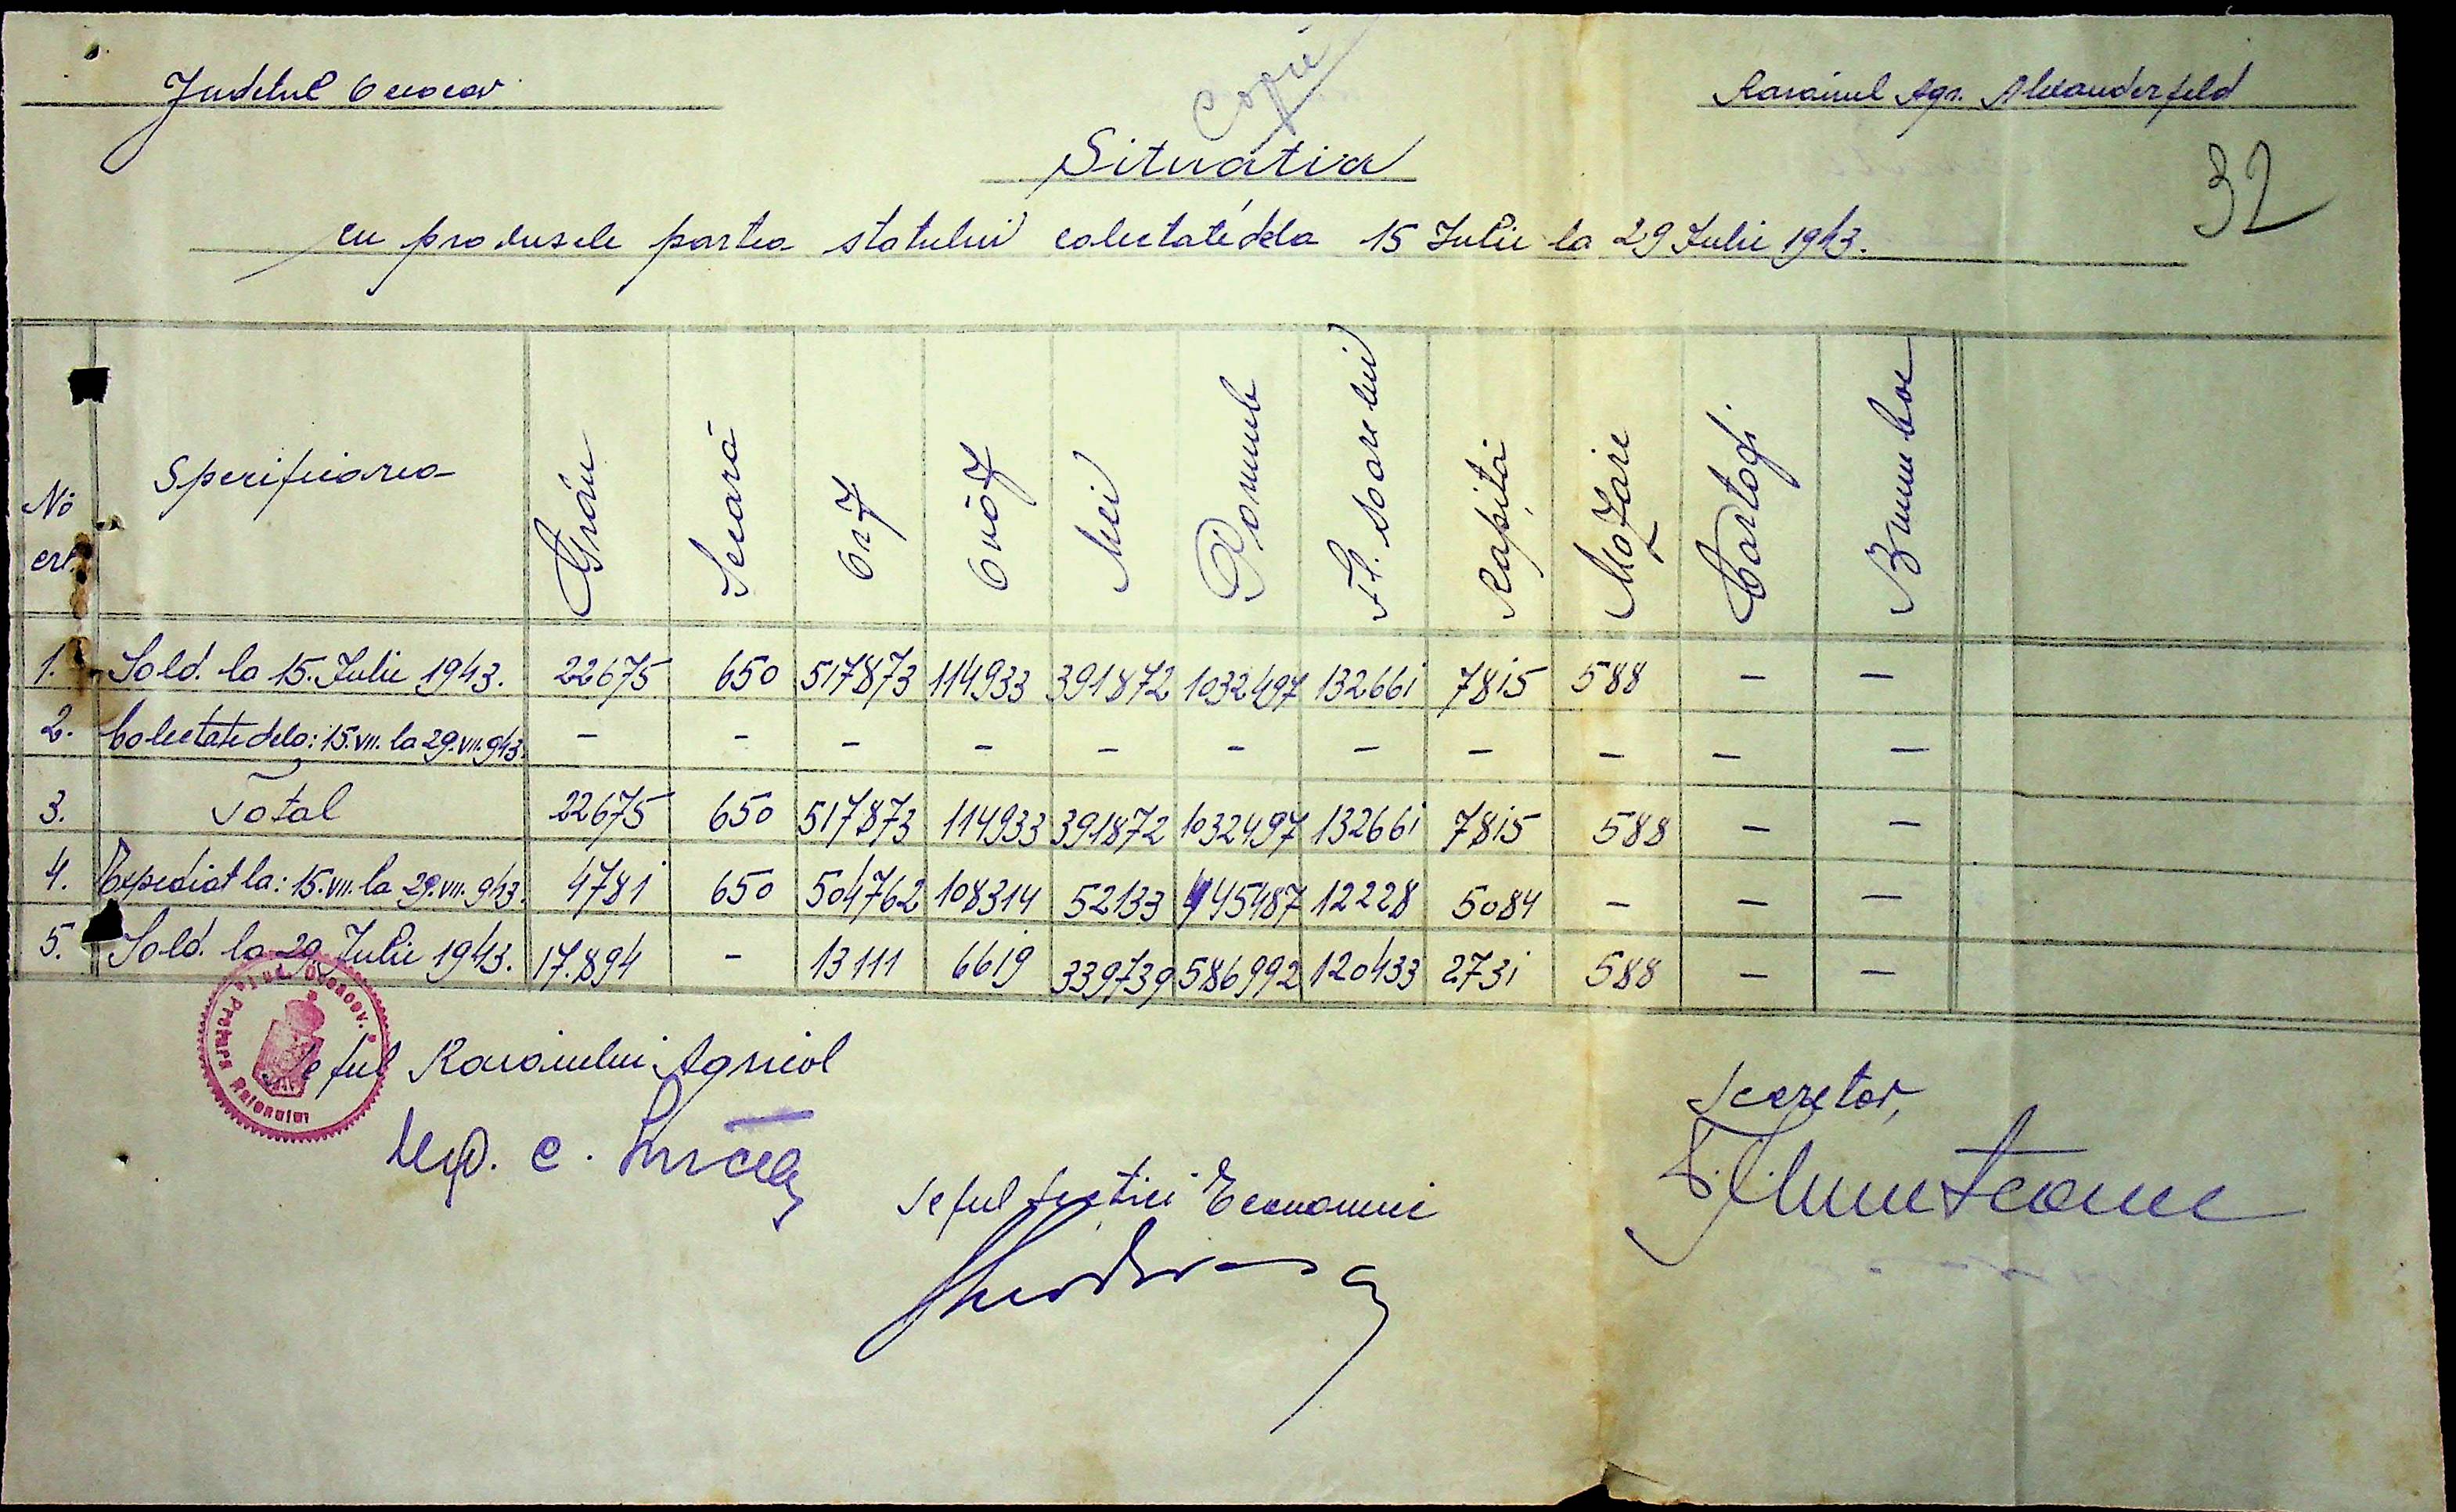 Copie
Judetul Oceacov
Raionul Agr. Alexanderfeld
32
Situatia
cu produsele partea statului colectate dela 15 Iulie la 29 Iulie 1943.
No crt. Specificarea Grâu Secară Orz Ovăz Mei Porumb Fl. soarelui Rapita Mazăre Cartofi Bumbac
1. Sold. la 15. Iulie 1943. 22675 650 517873 114933 391872 1032497 132661 7815 588 — —
2. Colectate dela: 15.VII. la 29.VII.943. — — — — — — — — — — —
3. Total 22675 650 517873 114933 391872 1032497 132661 7815 588 — —
4. Expediat la: 15.VII. la 29.VII.943. 4781 650 504762 108314 52133 445487 12228 5084 — — —
5. Sold. la 29 Iulie 1943. 17.894 — 13111 6619 339739 586992 120433 2731 588 — —
Seful Raionului Agricol
Secretar,
Seful Sectiei Economice
Pretura Raionului